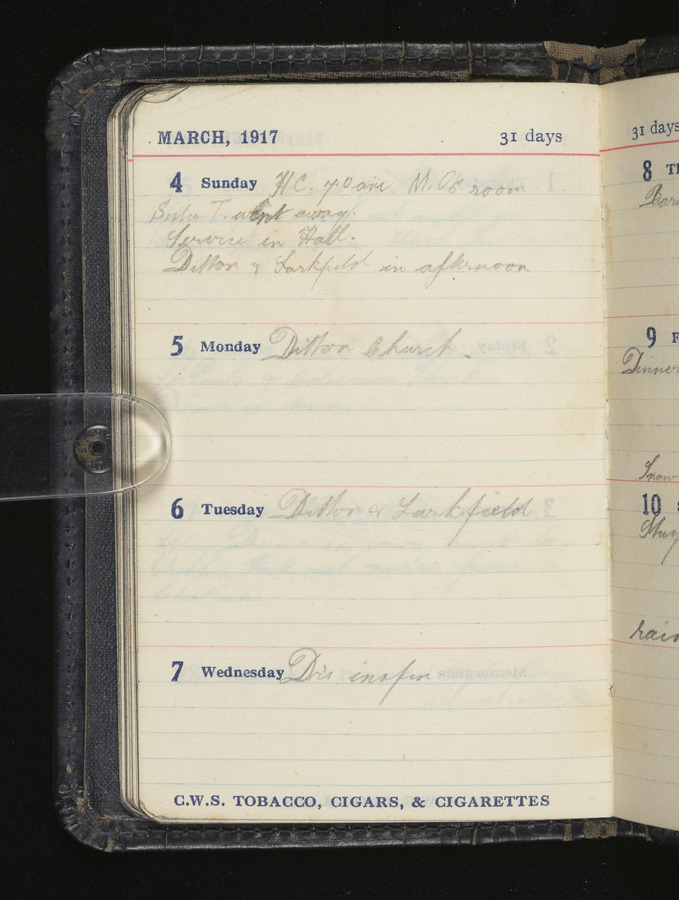 MARCH, 1917 31 days
4 Sunday H.C. 7.0 am M.O's room
Sister T. went away.
Service in Hall.
Ditton & Larkfield in afternoon
5 Monday Ditton Church.
6 Tuesday Ditton & Larkfield.
7 Wednesday Div's
C.W.S. TOBACCO, CIGARS, & CIGARETTES
31 days
8
9
Dinner
Snow
10